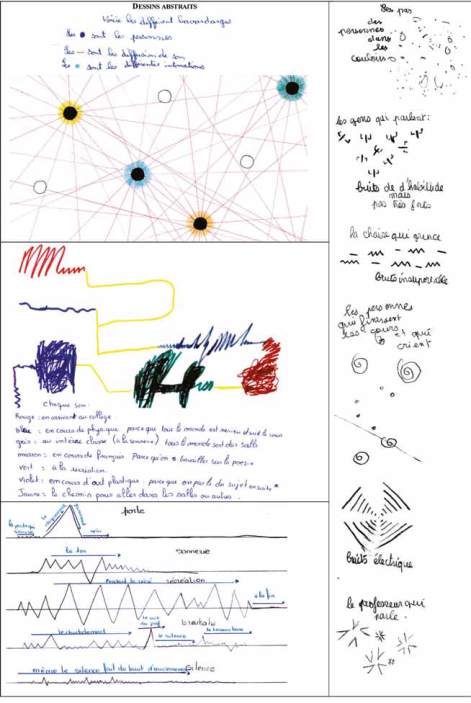 DESSINS ABSTRAITS
Voici les différent
Les ● sont les personnes
Les — sont les diffusion de son
Les ● sont les différentes intonations
Chaque son :
Rouge : en arrivant au collège
bleu : en cours de physique parce que tous le monde est
gris : au intère classe (à la sonnerie) tous le monde sort des salle
marron : en cours de français Parce qu'on travailler sur la poesie
vert : à la récréation.
violet : en cours d'art plastique : parce que on parle du sujet ensuite
Jaune : le chemin pour aller dans les salles ou autres.
porte
le ton
sonnerie
pendant la récré
récréation
à la fin
le chuchotement
brouhaha
le silence
même le silence fait du bruit
silence
Les pas
des
personnes
dans
les
couloirs
les gens qui parlent :
bruits de d'habitude
mais
pas très forts
la chaise qui grince
bruits insuportable
Les personnes
qui finissent
les cours et qui
crient
bruits électrique
le professeur qui
parle.